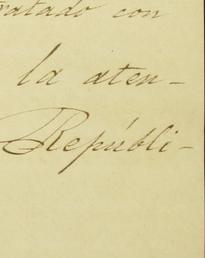 tratado con
la aten-
Repúbli-